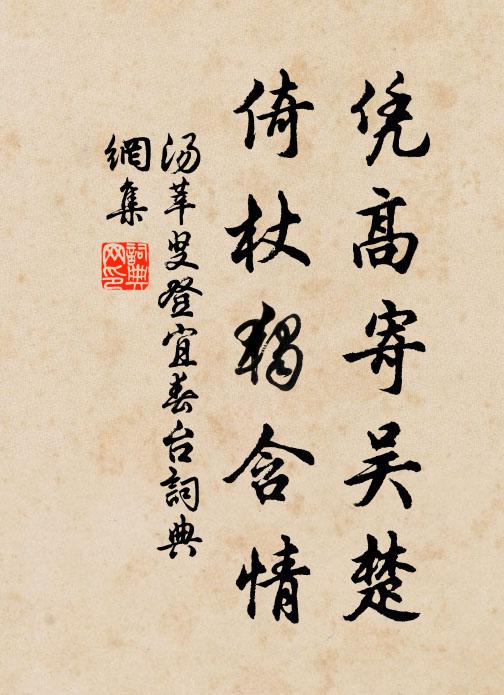 凭高寄吴楚
倚杖獨含情
汤莘叟登宜春台詞典
網集
詞典网印